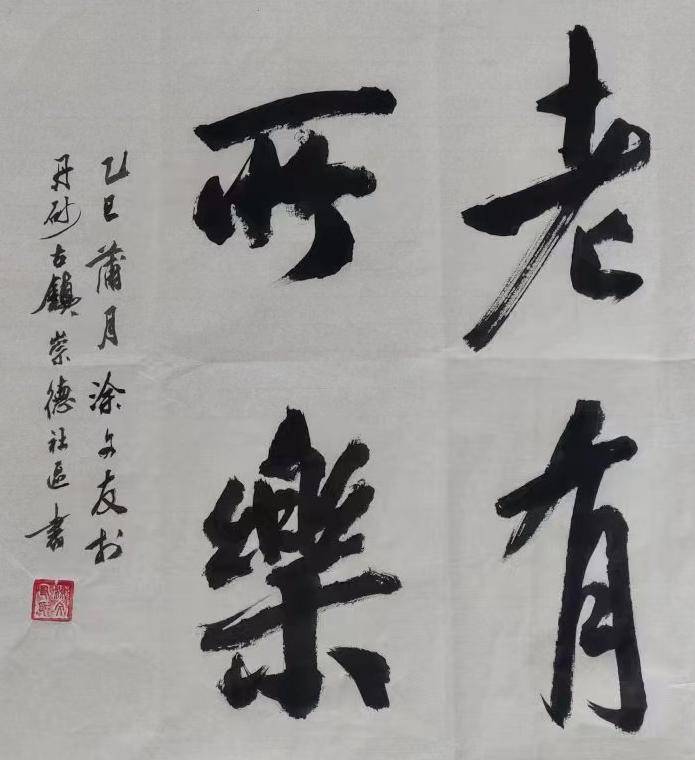 老有
所樂
乙巳蒲月涂文友於
丹砂古鎮崇德社區書